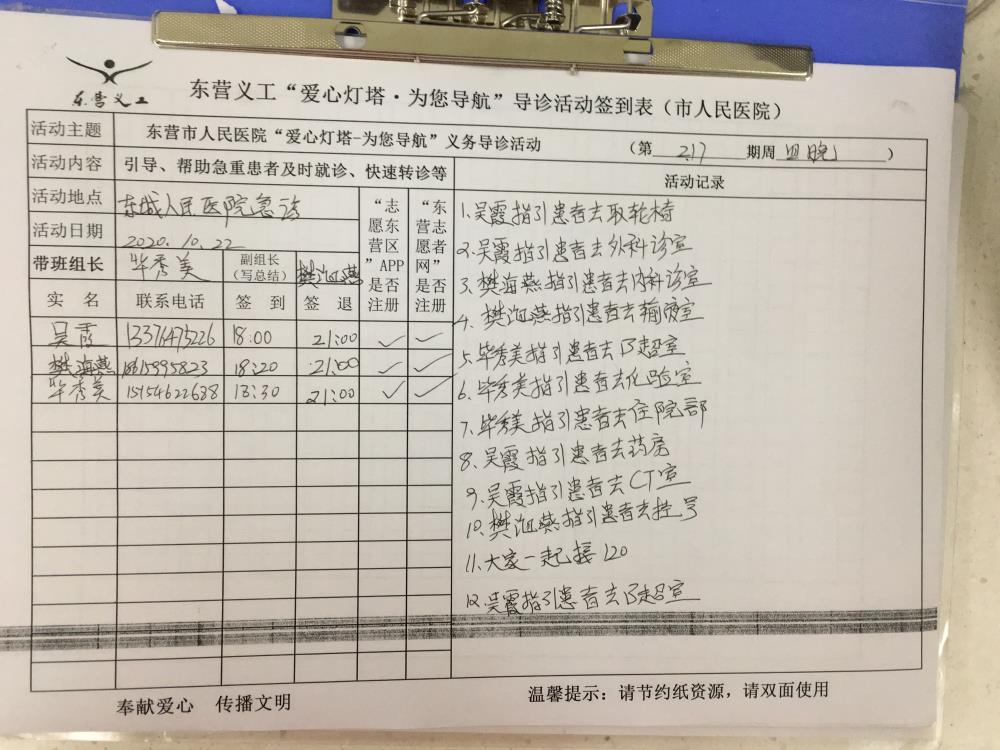 东营义工
东营义工“爱心灯塔·为您导航”导诊活动签到表（市人民医院）
活动主题 东营市人民医院“爱心灯塔-为您导航”义务导诊活动 （第 217 期周 四晚 ）
活动内容 引导、帮助急重患者及时就诊、快速转诊等 活动记录
活动地点 东城人民医院急诊
活动日期 2020.10.22
带班组长 毕秀美 副组长（写总结） 樊海燕
“志愿东营区”APP是否注册
“东营志愿者网”是否注册
实 名 联系电话 签 到 签 退
吴霞 13376475226 18:00 21:00 ✓ ✓
樊海燕 18:20 21:00 ✓ ✓
毕秀美 15154622688 18:30 21:00 ✓ ✓
1.吴霞指引患者去取轮椅
2.吴霞指引患者去外科诊室
3.樊海燕指引患者去内科诊室
4.樊海燕指引患者去输液室
5.毕秀美指引患者去B超室
6.毕秀美指引患者去化验室
7.毕秀美指引患者去住院部
8.吴霞指引患者去药房
9.吴霞指引患者去CT室
10.樊海燕指引患者去挂号
11.大家一起接120
12.吴霞指引患者去B超室
奉献爱心 传播文明
温馨提示：请节约纸资源，请双面使用